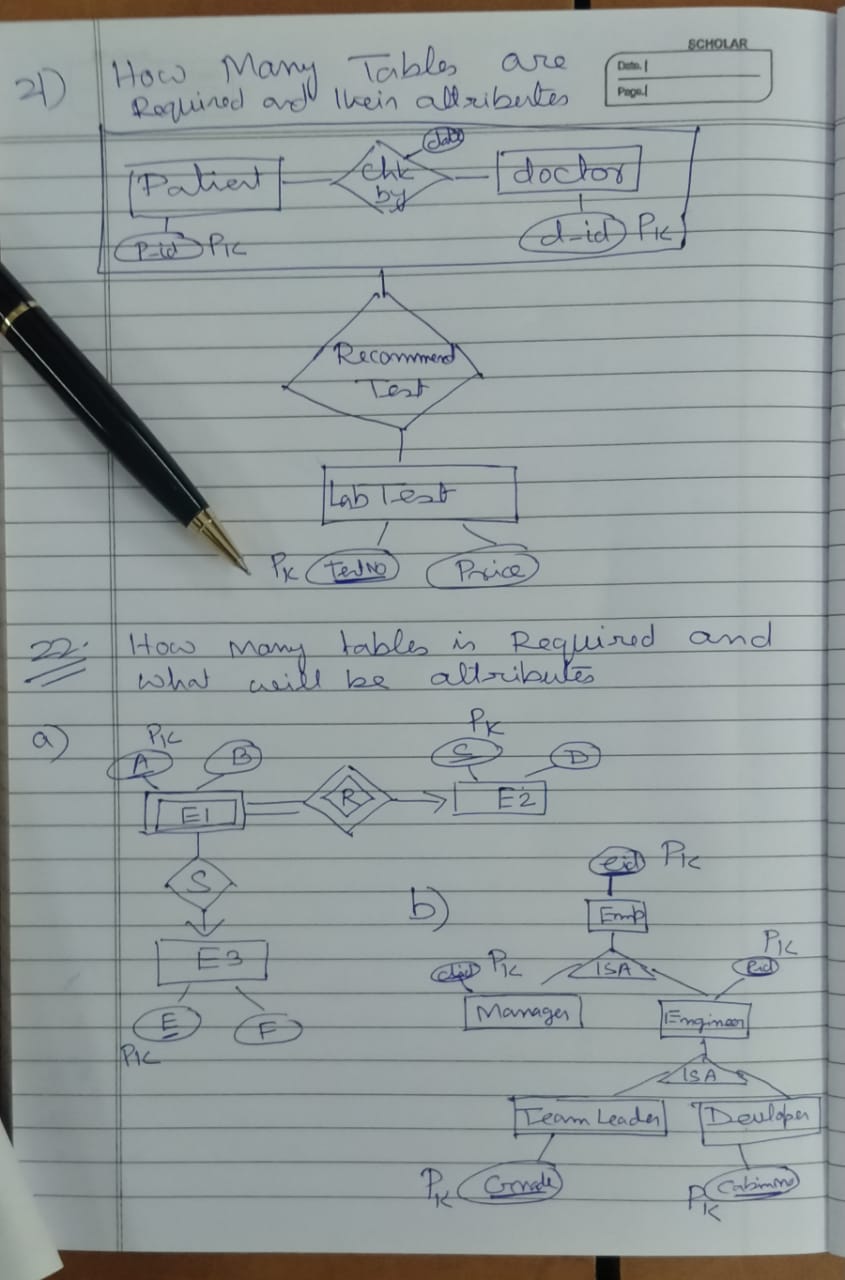 SCHOLAR
Date.
Page.
21) How Many Tables are
Required and their attributes
date
Patient chk by doctor
P-id PK d-id PK
Recommend
Test
Lab Test
PK Test No Price
22. How Many tables is Required and
what will be attributes
a) PK PK
A B C D
E1 R E2
S
E3
E F
PK
b) eid PK
Emp
ISA
PK PK
eid
Manager Engineer
ISA
Team Leader Devloper
PK Grade PK Cabinno